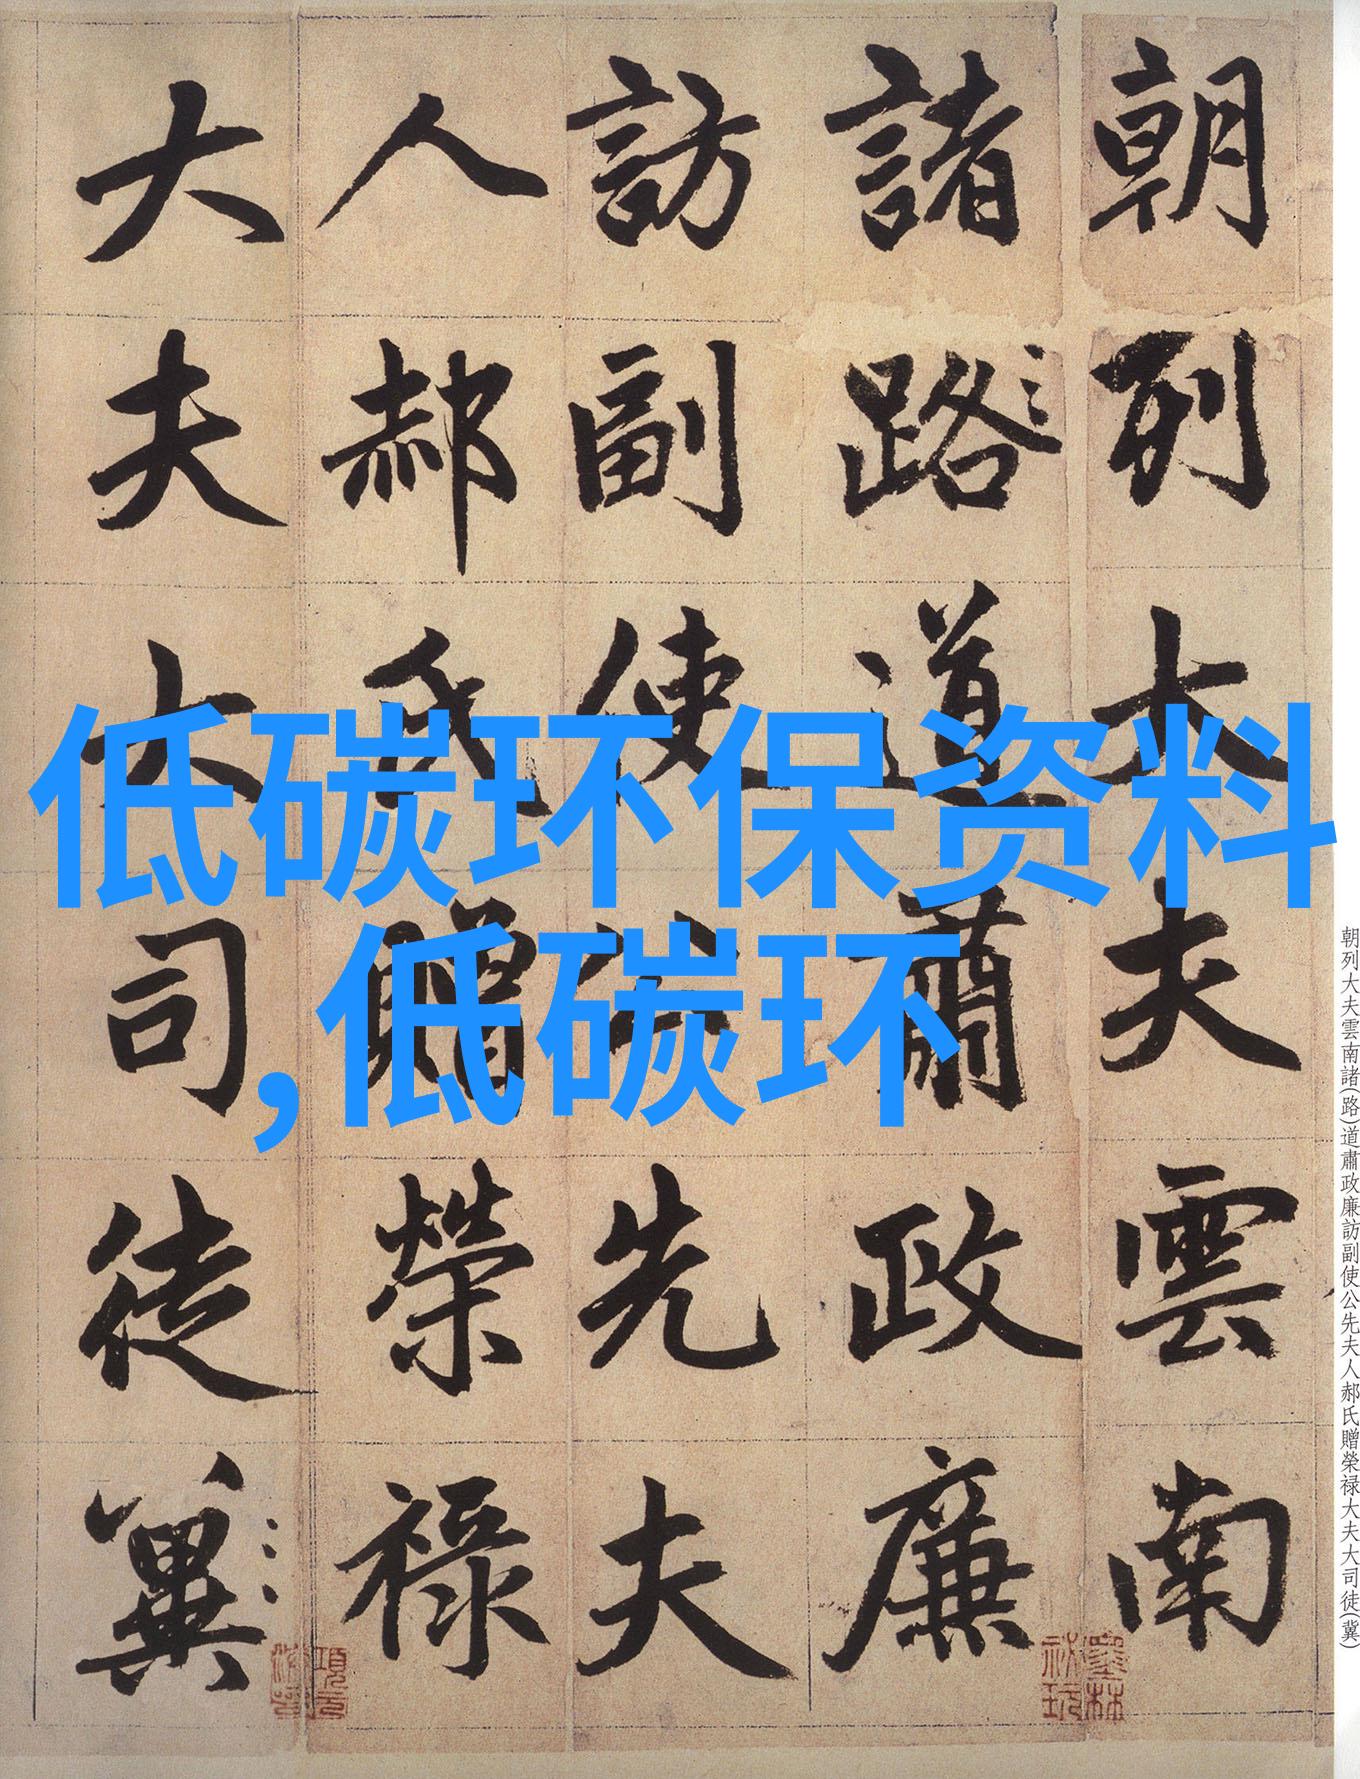 朝列大夫雲南
諸路道肅政廉
訪副使公先夫
人郝氏贈榮禄
大夫大司徒冀
低碳环保资料
,低碳环
朝列大夫雲南諸(路)道肅政廉訪副使公先夫人郝氏贈榮禄大夫大司徒(冀)